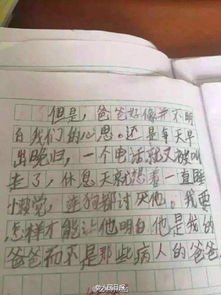 但是,爸爸好像并不明
白我们的心思。还是每天早
出晚归,一个电话就又被叫
走了,休息天就想着一直睡
懒觉,连狗都讨厌他。我要
怎样才能让他明白他是我的
爸爸而不是那些病人的爸爸